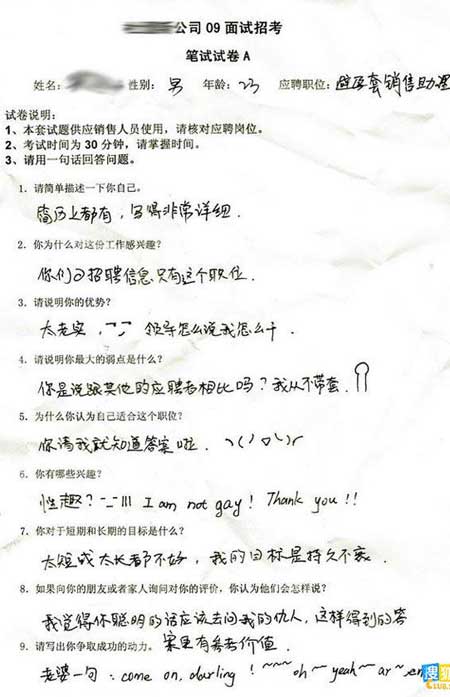 公司 09 面试招考
笔试试卷 A
姓名： 性别：男 年龄：23 应聘职位：避孕套销售助理
试卷说明：
1、本套试题供应销售人员使用，请核对应聘岗位。
2、考试时间为 30 分钟，请掌握时间。
3、请用一句话回答问题。
1．请简单描述一下你自己。
简历上都有，写得非常详细．
2．你为什么对这份工作感兴趣？
你们的招聘信息只有这个职位．
3．请说明你的优势？
太老实， 领导怎么说我怎么干．
4．请说明你最大的弱点是什么？
你是说跟其他的应聘者相比吗？我从不带套．
5．为什么你认为自己适合这个职位？
你请我就知道答案啦．
6．你有哪些兴趣？
性趣？-_-||| I am not gay！Thank you！！
7．你对于短期和长期的目标是什么？
太短或太长都不好，我的目标是持久不衰．
8．如果向你的朋友或者家人询问对你的评价，你认为他们会怎样说？
我觉得你聪明的话应该去问我的仇人，这样得到的答
案更有参考价值．
9．请写出你争取成功的动力。
老婆一句：come on, darling！~~~oh~yeah~ar~
搜狐
CLUB.